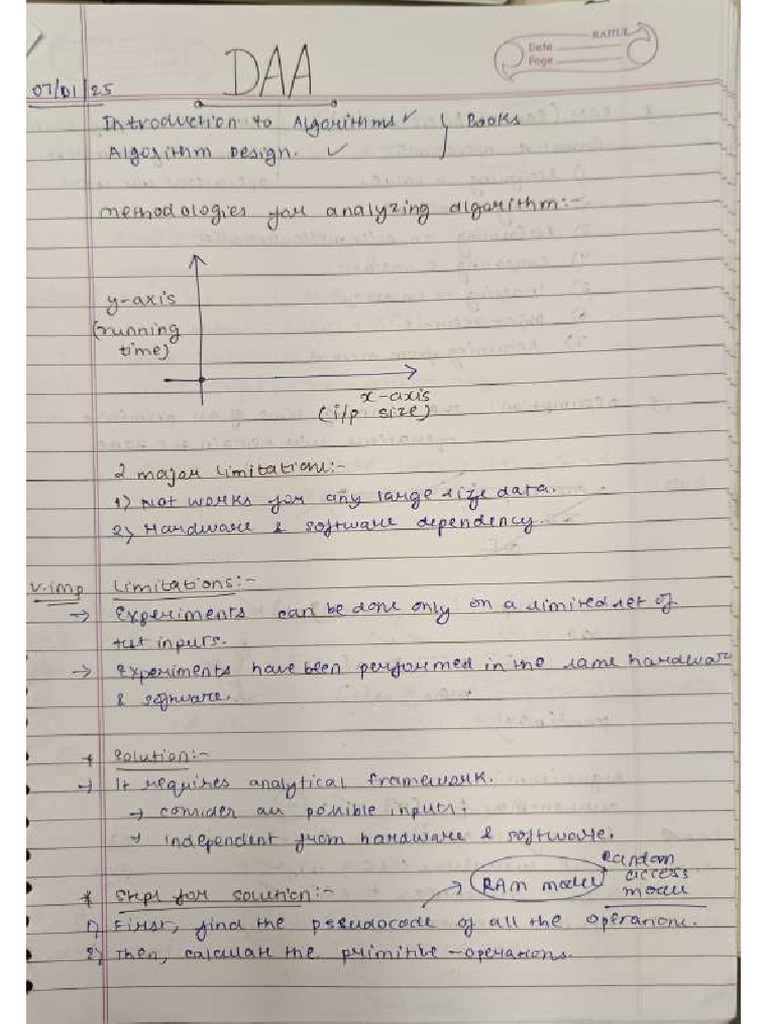 DAA
RAHUL
Date
Page
07/01/25
Introduction to Algorithms ✓ } Books
Algorithm Design. ✓
methodologies for analyzing algorithm:-
y-axis
(running
time)
x-axis
(i/p size)
2 major limitations:-
1) Not works for any large size data.
2) Hardware & software dependency.
V.imp Limitations:-
→ Experiments can be done only on a limited set of
test inputs.
→ Experiments have been performed in the same hardware
& software.
* Solution:-
→ It requires analytical framework.
→ consider all possible inputs.
→ independent from hardware & software.
* Steps for solution:- → RAM model Random
access
model
1) First, find the pseudocode of all the operations.
2) Then, calculate the primitive-operations.